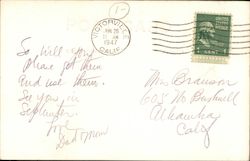 1-
POST CARD
VICTORVILLE
JUN 26
1947
CALIF.
So Will you
please get them
and use them.
See you in
September.
Dad & Mom
Mrs Branson
605 N. Bushnell
Alhambra
Calif